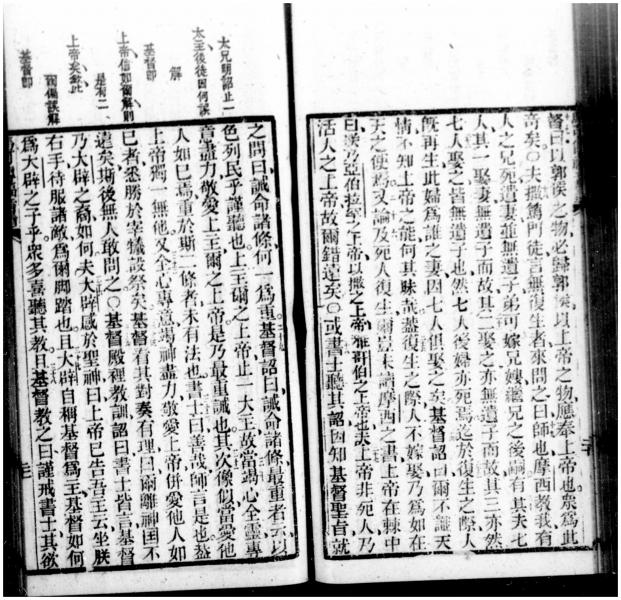 督曰以郭矦之物必歸郭矦以上帝之物應奉上帝也衆爲此
竒矣○夫撒篤門徒言無復生者來問之曰師也摩西教我有
人之兄死遺妻並無遺子弟可嫁兄嫂繼兄之後嗣有其夫七
人其一娶妻無遺子而故其二娶之亦無遺子而故其三亦然
七人娶之皆無遺子也然七人後婦亦死焉迄於復生之際人
既再生此婦爲誰之妻因七人俱娶之矣基督詔曰爾不識天
情不知上帝之能何其昧哉蓋復生之際人不嫁娶乃爲如在
天之使焉又論及死人復生爾豈未讀摩西之書上帝在棘中
曰我乃亞伯拉罕之上帝以撒之上帝雅哥伯之上帝也夫上帝非死人乃
活人之上帝故爾錯遠矣○或書士聽其詔因知基督聖旨就
之問曰誡命諸條何一爲重基督詔曰誡命諸條最重者云以
色列民乎謹聽也上主爾之上帝止一大主故當竭心全靈專
意盡力敬愛上主爾之上帝是乃最重誡也其次像似當愛他
人如己焉重於斯二條者未有法也書士曰善哉師言是也蓋
上帝獨一無他又全心專意竭神盡力敬愛上帝併愛他人如
己者悉勝於宰犧設祭矣基督有其對奏有理曰爾離神囯不
遠矣斯後無人敢問之○基督殿裡教訓詔曰書士皆言基督
乃大辟之裔如何夫大辟感於聖神曰上帝已告吾主云坐朕
右手待服諸敵爲俐脚踏也且大辟自稱基督爲主基督如何
爲大辟之子乎眾多喜聽其教且基督教之曰謹戒書士其欲
太兄明詔止一
太主後徒因何誤
解
基督卽
上帝信如爾解則
是有二
上帝矣
誤解
基督卽